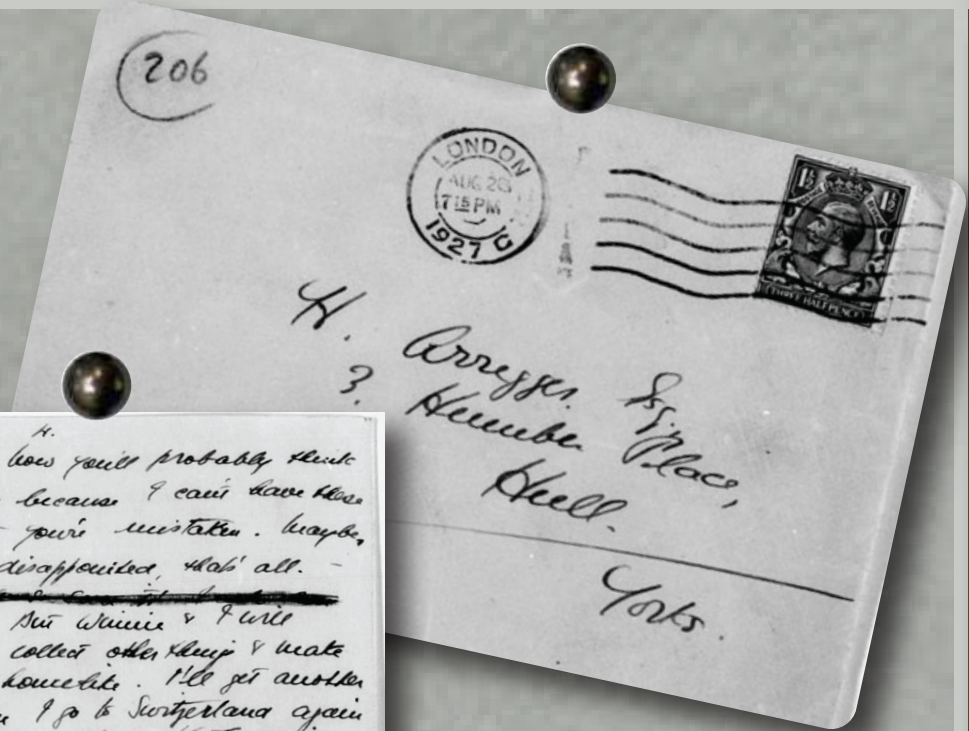 206
LONDON
AUG 26
7 15 PM
1927 C
1½
THREE HALFPENCE
H. Arregger Esq,
3. Humber Place,
Hull.
Yorks.
4.
how you'll probably think
because I can't have these
you're mistaken. Maybe,
disappointed, that's all. –
But Winnie & I will
collect other things & make
homelike. I'll get another
I go to Switzerland again